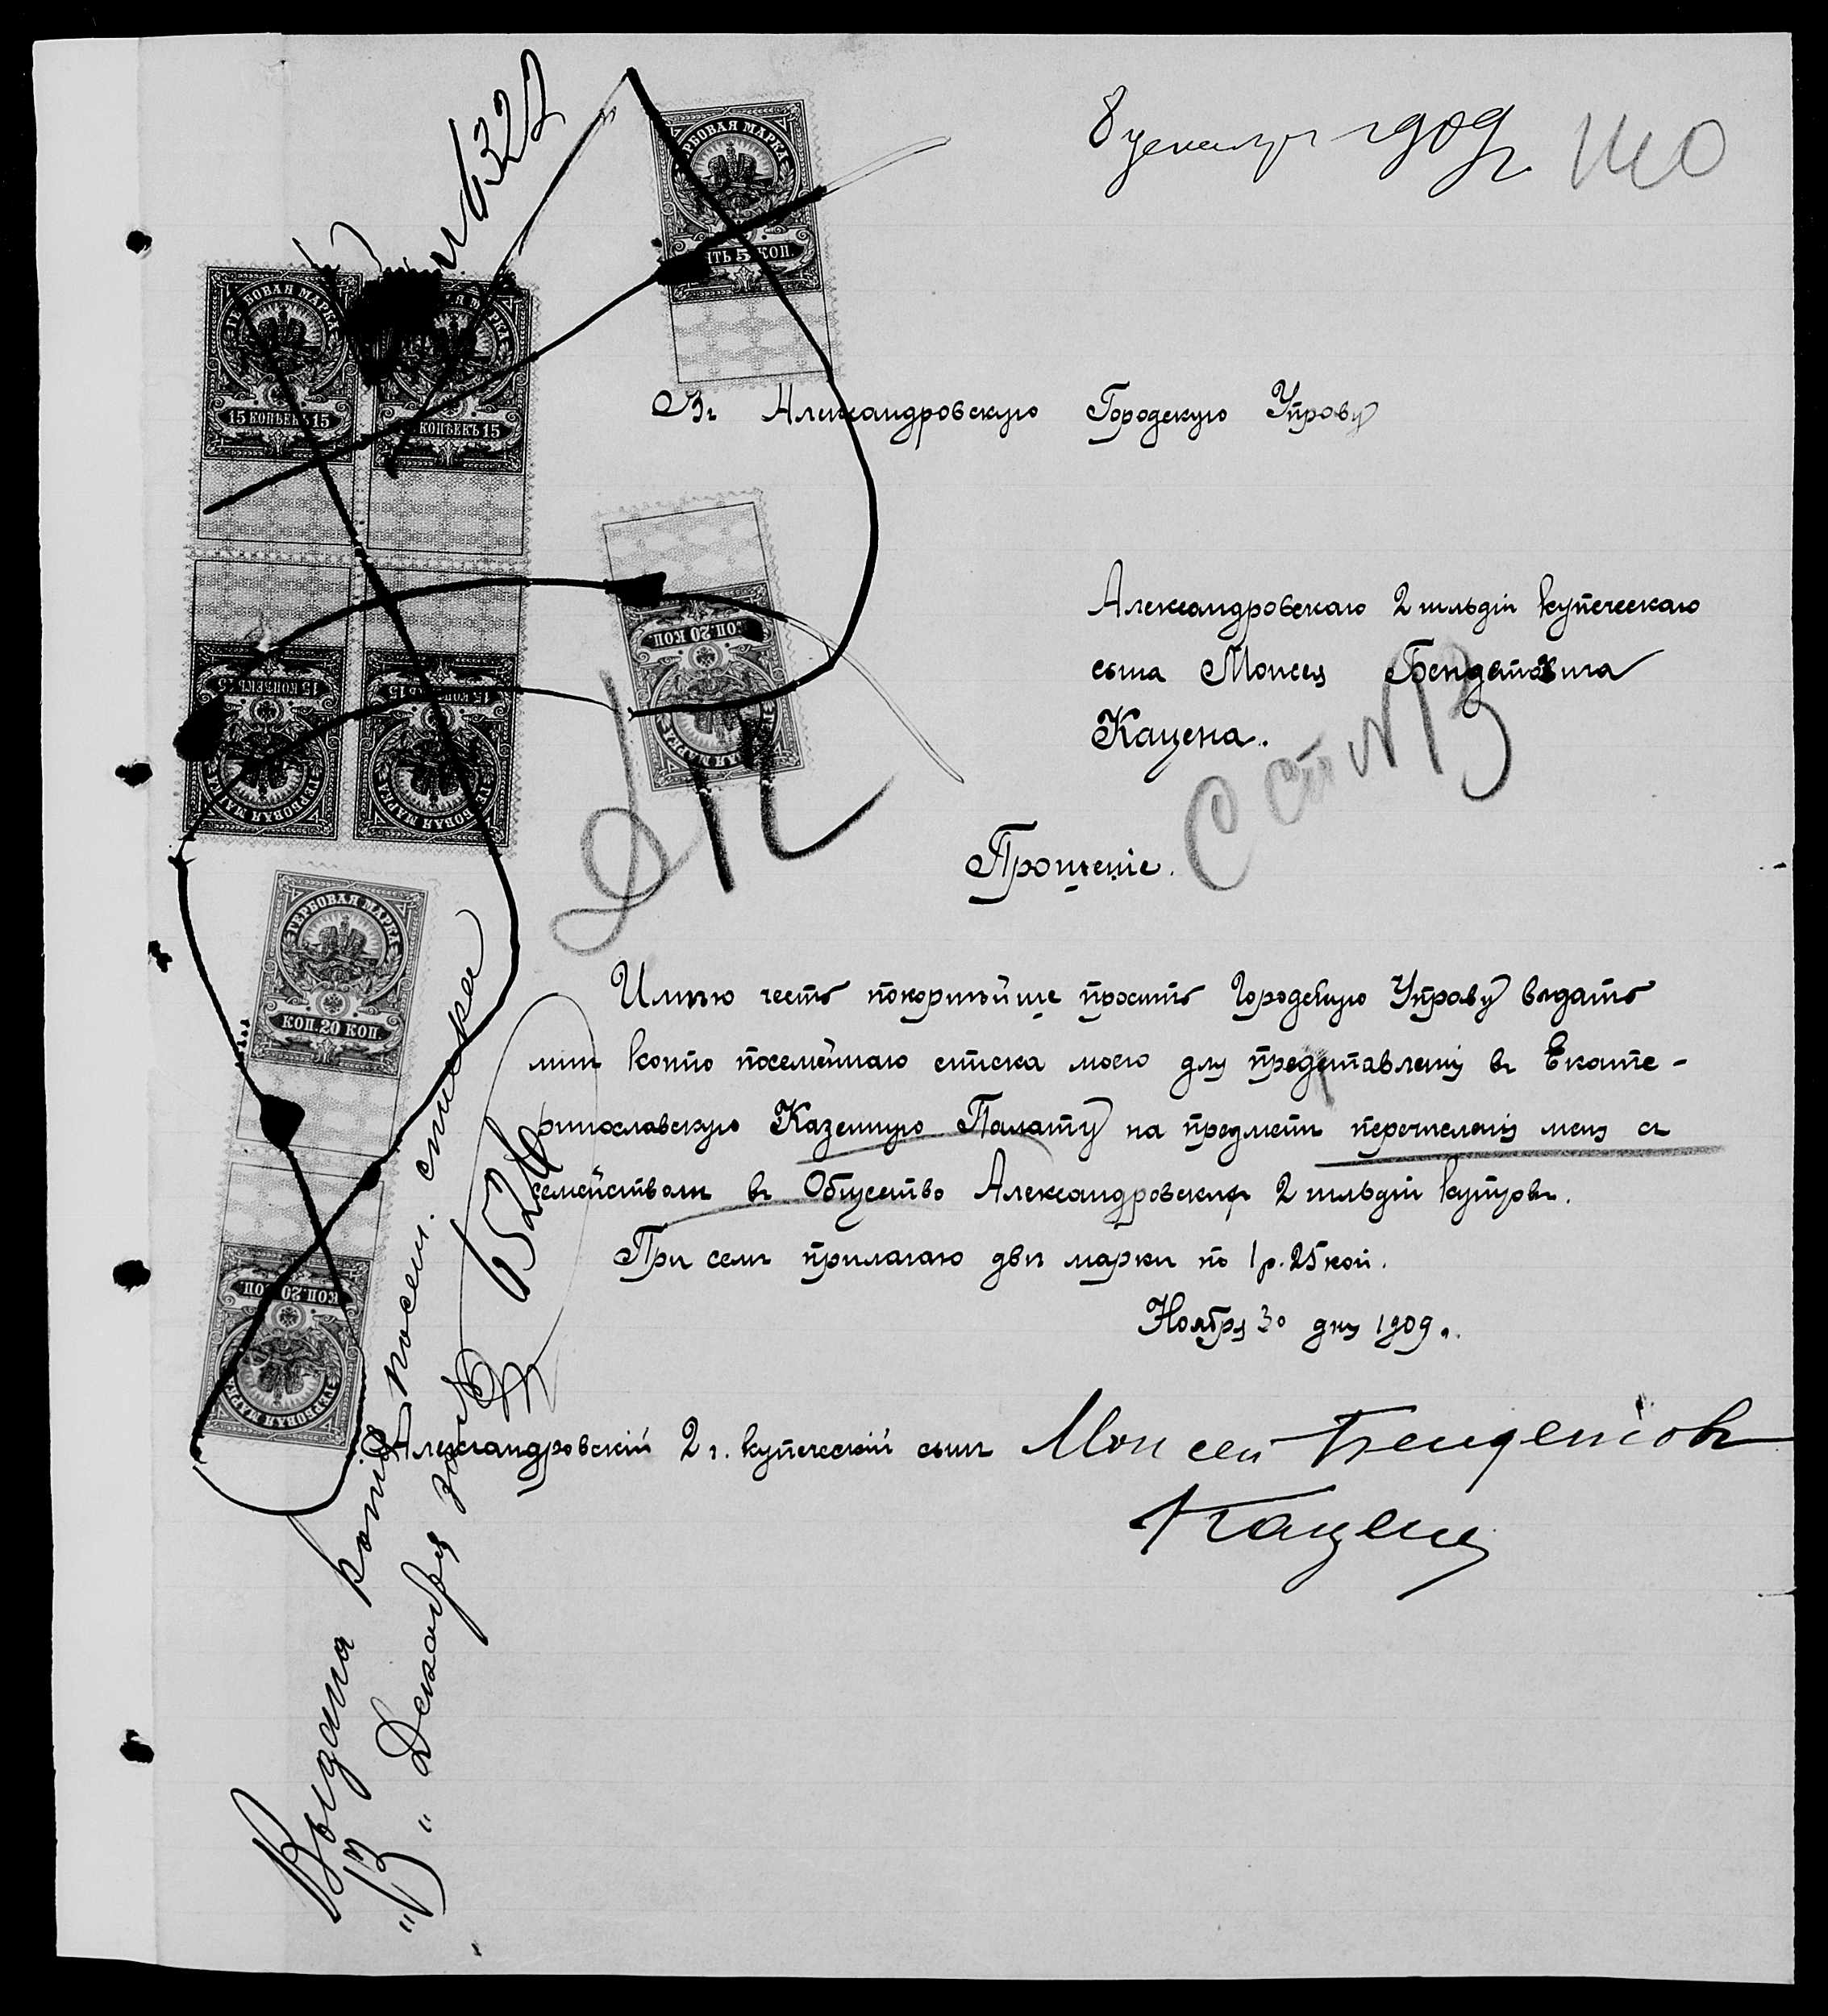 8 декабря 1909 г.
№ 6322
ГЕРБОВАЯ МАРКА
ПЯТЬ 5 КОП.
ГЕРБОВАЯ МАРКА
15 КОПѢЕКЪ 15
ГЕРБОВАЯ МАРКА
15 КОПѢЕКЪ 15
Въ Александровскую Городскую Управу
КОП. 20 КОП.
ГЕРБОВАЯ МАРКА
15 КОПѢЕКЪ 15
ГЕРБОВАЯ МАРКА
15 КОПѢЕКЪ 15
ГЕРБОВАЯ МАРКА
Александровскаго 2 гильдіи купеческаго
сына Моисея Бендетовича
Кацена.
Прошеніе.
ГЕРБОВАЯ МАРКА
КОП. 20 КОП.
Имѣю честь покорнѣйше просить Городскую Управу выдать
мнѣ копію посемейнаго списка моего для представленія въ Екате-
ринославскую Казенную Палату на предметъ перечисленія меня съ
семействомъ въ Общество Александровскихъ 2 гильдіи купцовъ.
При семъ прилагаю двѣ марки по 1 р. 25 коп.
КОП. 20 КОП.
ГЕРБОВАЯ МАРКА
Ноября 30 дня 1909 г.
Александровскій 2 г. купеческій сынъ Моисей Бендетовъ
Каценъ
Выдана копія посем. списка
"13" Декабря за №
6526